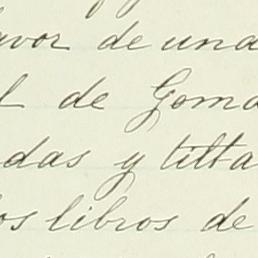 avor de una
l de Goma
das y tilta
os libros de